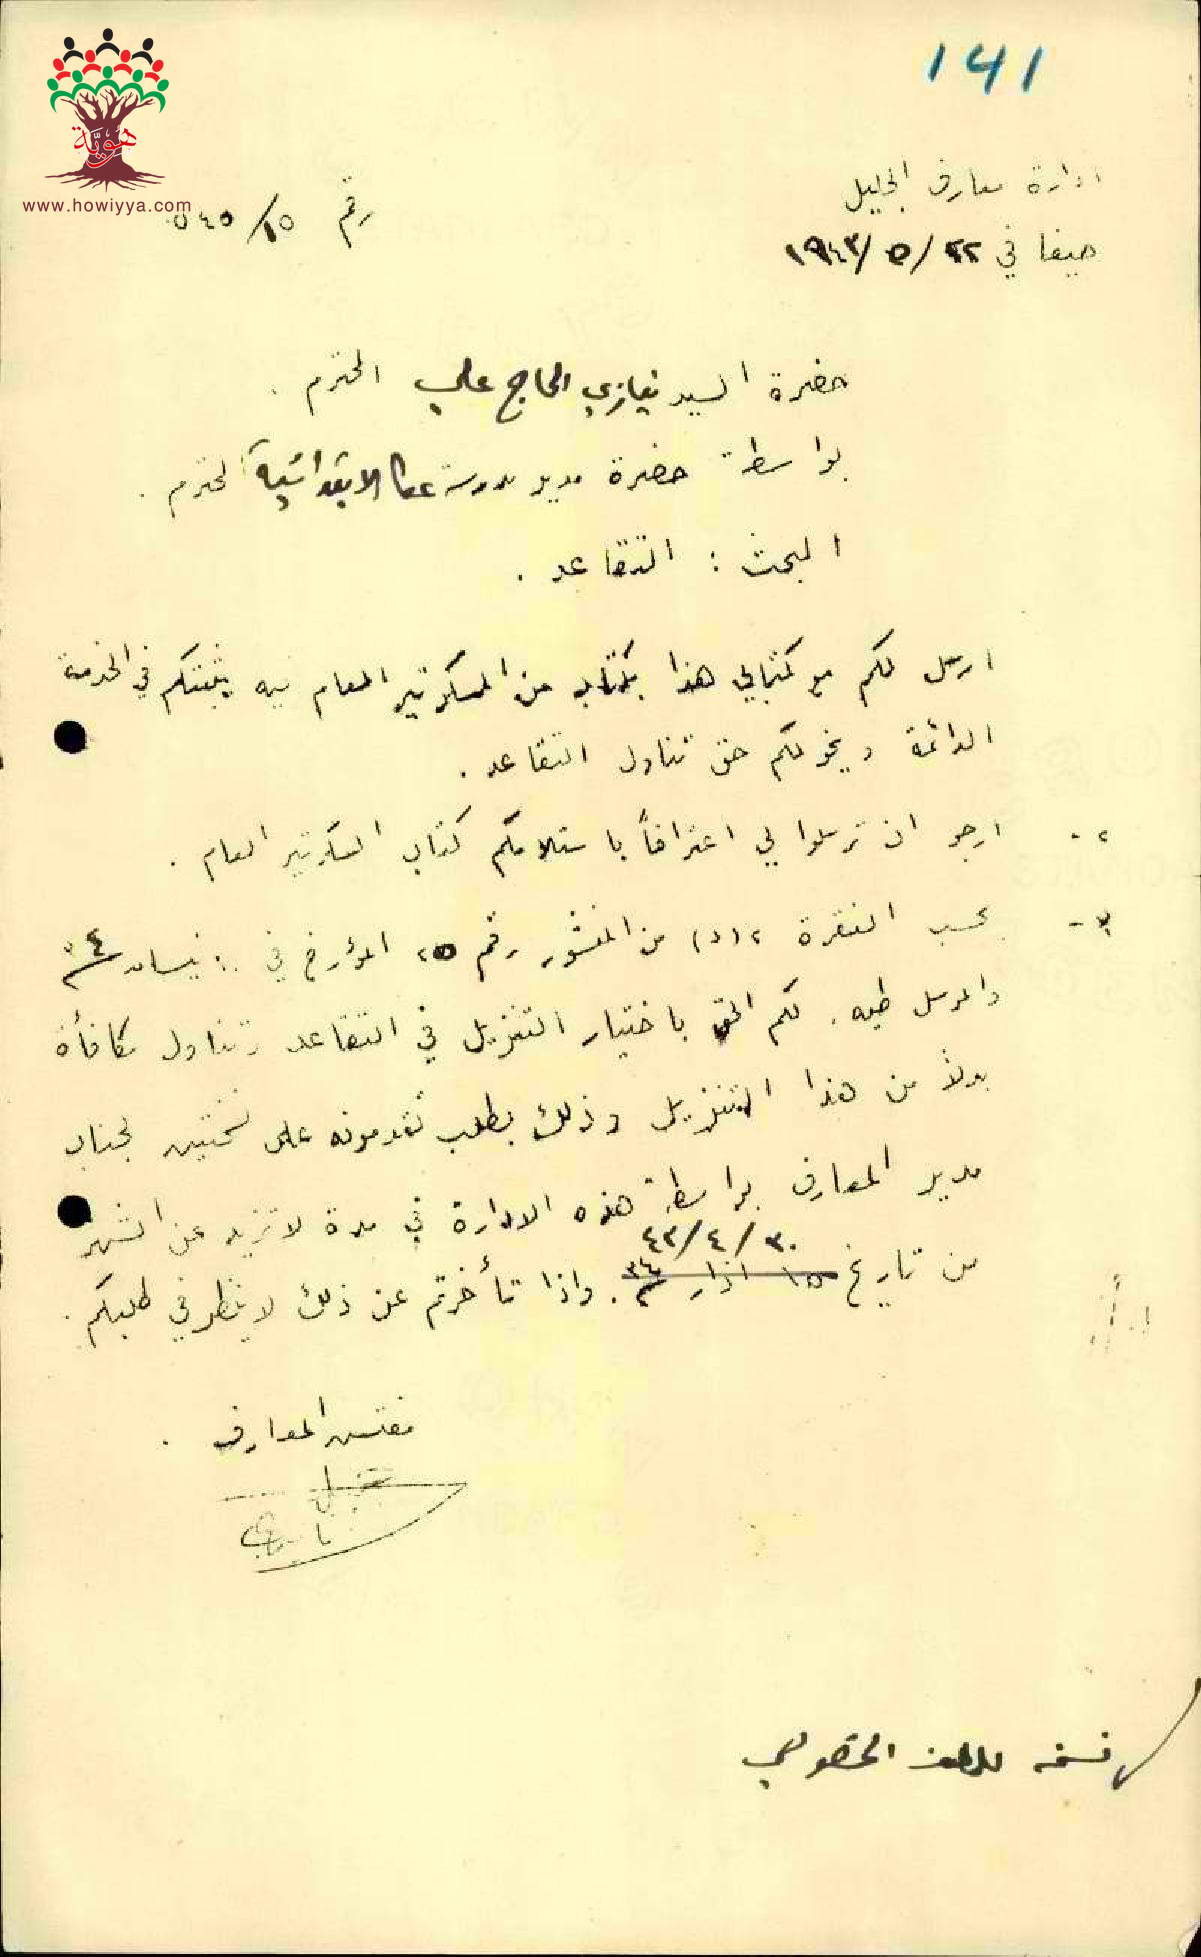 ١٤١
هوية
www.howiyya.com
ادارة معارف الجليل
رقم ١٥/ ٥٤٥
حيفا في ٢٢/ ٥/ ١٩٤٣
حضرة السيد نيازي الحاج علي المحترم .
بواسطة حضرة مدير مدرسة عكا الابتدائية المحترم .
البحث : التقاعد .
ارسل لكم مع كتابي هذا كتاب من السكرتير العام فيه يثبتكم في الخدمة
الدائمة ويخولكم حق تناول التقاعد .
٢- ارجو ان ترسلوا لي اعترافاً باستلامكم كتاب السكرتير العام .
٣- بحسب الفقرة ٢ (د) من المنشور رقم ٢٥ المؤرخ في نيسان ٣٤
والمرسل طيه . لكم الحق باختيار التنزيل في التقاعد وتناول مكافأة
بدلاً من هذا التنزيل وذلك بطلب تقدمونه على نسختين لجناب
مدير المعارف بواسطة هذه الادارة في مدة لا تزيد عن الشهر
٣٠/ ٤/ ٤٣
من تاريخ ١٥ اذار ٣٤ . واذا تأخرتم عن ذلك لا ينظر في طلبكم .
مفتش المعارف .
نسخه للملف الخصوصي